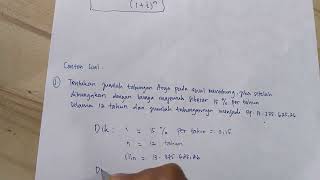 (1+i)ⁿ
Contoh Soal :
① Tentukan jumlah tabungan Arya pada awal menabung, jika setelah
dibungakan dengan bunga majemuk sebesar 15 % per tahun
selama 12 tahun dan jumlah tabungannya menjadi Rp. 13.375.625,26
Dik : i = 15 % per tahun = 0,15
n = 12 tahun
Mn = 13.375.625,26